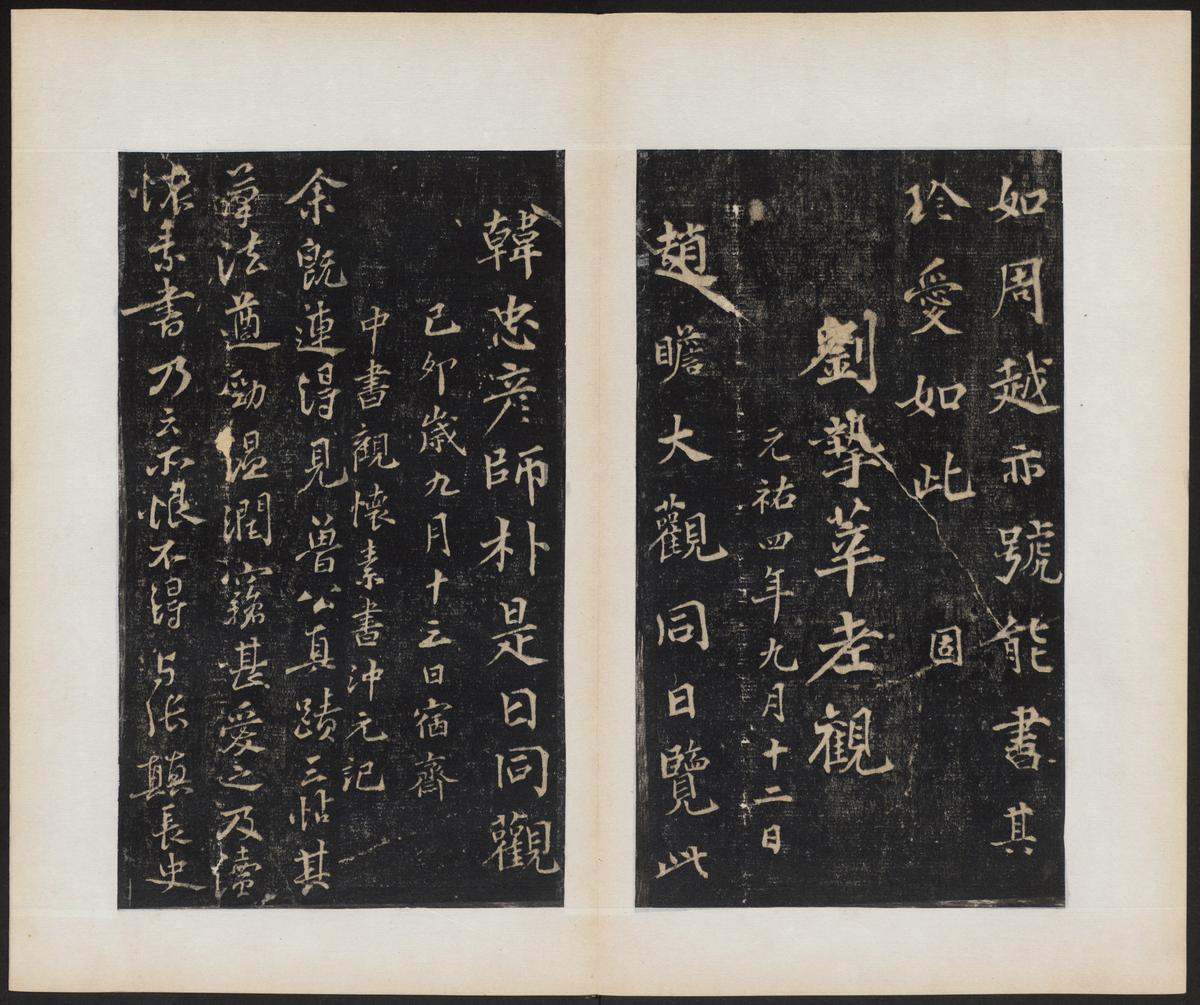 如周越亦號能書其
珍愛如此 固
劉摯莘老觀
元祐四年九月十二日
趙瞻大觀同日覽此
韓忠彥師朴是日同觀
己卯歲九月十三日宿齋
中書觀懷素書沖元記
余既連得見魯公真蹟三帖其
草法遒勁溫潤竊甚愛之及讀
懷素書乃云亦恨不得与張顛長史